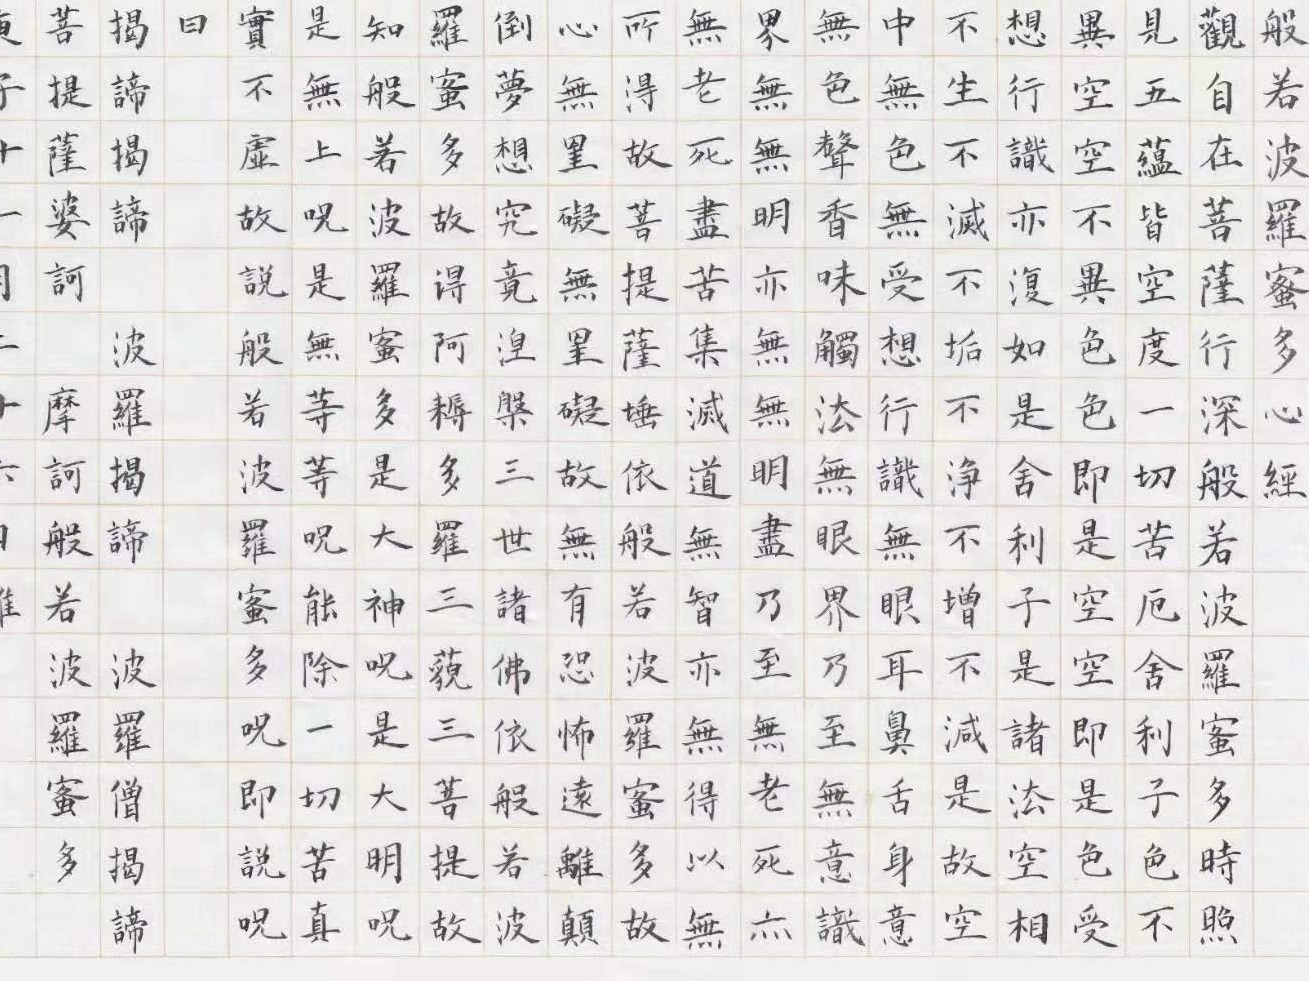 般若波羅蜜多心經
觀自在菩薩行深般若波羅蜜多時照
見五蘊皆空度一切苦厄舍利子色不
異空空不異色色即是空空即是色受
想行識亦復如是舍利子是諸法空相
不生不滅不垢不淨不增不減是故空
中無色無受想行識無眼耳鼻舌身意
無色聲香味觸法無眼界乃至無意識
界無無明亦無無明盡乃至無老死亦
無老死盡苦集滅道無智亦無得以無
所得故菩提薩埵依般若波羅蜜多故
心無罣礙無罣礙故無有恐怖遠離顛
倒夢想究竟涅槃三世諸佛依般若波
羅蜜多故得阿耨多羅三藐三菩提故
知般若波羅蜜多是大神咒是大明咒
是無上咒是無等等咒能除一切苦真
實不虛故說般若波羅蜜多咒即說咒
曰
揭諦揭諦 波羅揭諦 波羅僧揭諦
菩提薩婆訶 摩訶般若波羅蜜多
子十一月二十六日